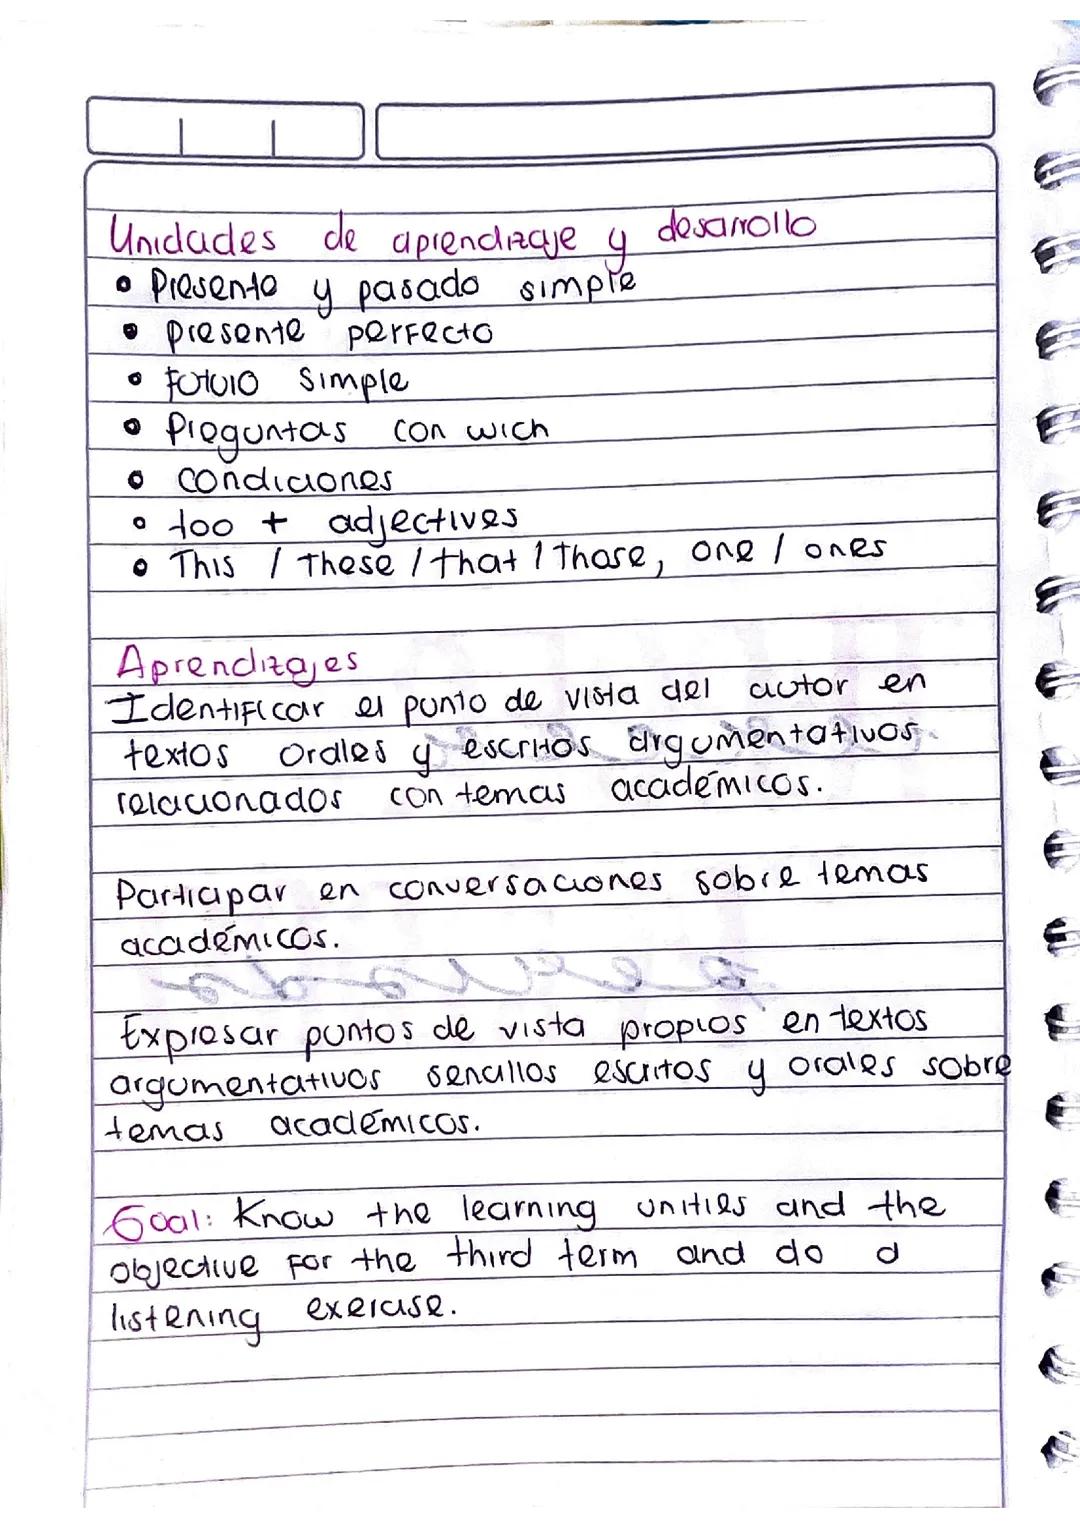 Unidades de aprendizaje y desarrollo
• Presente y pasado simple
• presente perfecto
• Futuro Simple
• Preguntas con wich
• condiciones
• too + adjectives
• This / These / that / Those, one / ones
Aprendizajes
Identificar el punto de vista del autor en
textos orales y escritos argumentativos
relacionados con temas académicos.
Participar en conversaciones sobre temas
académicos.
Expresar puntos de vista propios en textos
argumentativos sencillos escritos y orales sobre
temas académicos.
Goal: Know the learning unities and the
objective for the third term and do a
listening exercise.